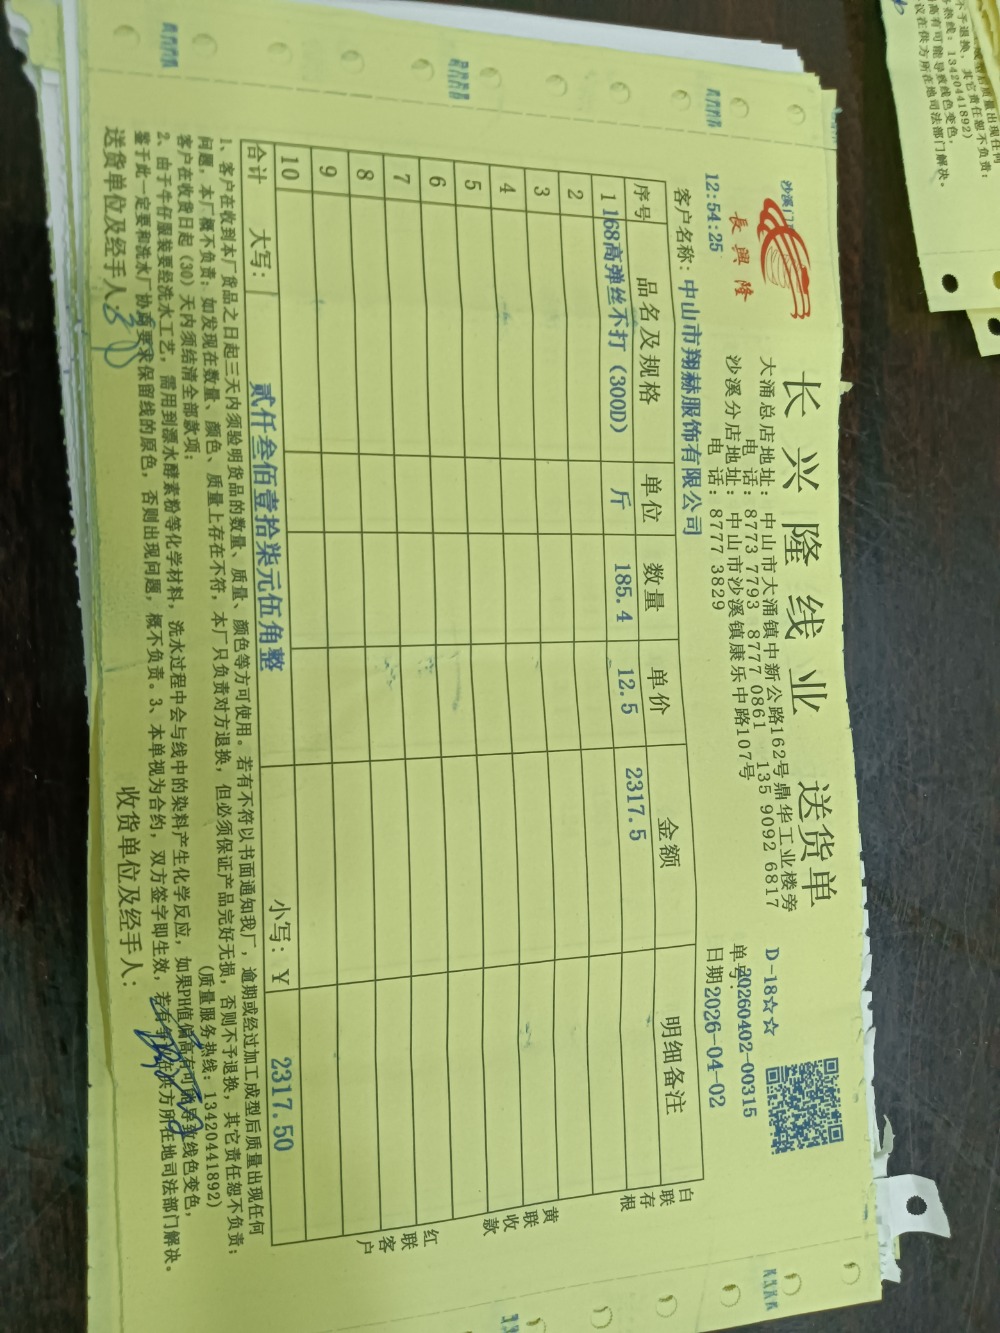 沙溪门
長興隆
长兴隆线业 送货单
大涌总店地址：中山市大涌镇中新公路162号鼎华工业楼旁
电 话：8773 7793 8777 0861 135 9092 6817
沙溪分店地址：中山市沙溪镇康乐中路107号
电 话：8777 3829
D-18☆☆
单号:20260402-00315
12:54:25
日期2026-04-02
客户名称：中山市翔赫服饰有限公司
序号 品名及规格 单位 数量 单价 金额 明细备注
1 168高弹丝不打（300D） 斤 185.4 12.5 2317.5
2
3
4
5
6
7
8
9
10
合计 大写：贰仟叁佰壹拾柒元伍角整 小写：￥ 2317.50
白联存根
黄联收款
红联客户
1、客户在收到本厂货品之日起三天内须验明货品的数量、质量、颜色等方可使用。若有不符以书面通知我厂，逾期或经过加工成型后质量出现任何
问题，本厂概不负责；如发现在数量、颜色、质量上存在不符，本厂只负责对方退换，但必须保证产品完好无损，否则不予退换，其它责任恕不负责；
客户在收货日起（30）天内须结清全部款项； （质量服务热线：13420441892）
2、由于牛仔服装要经洗水工艺，需用到漂水酵素粉等化学材料，洗水过程中会与线中的染料产生化学反应，如果PH值偏高有可能导致线色变色，
鉴于此一定要和洗水厂协商要求保留线的原色，否则出现问题，概不负责。3、本单视为合约，双方签字即生效，若有争议在供方所在地司法部门解决。
送货单位及经手人：
收货单位及经手人：
成型后质量出现任何
不予退换，其它责任恕不负责；
热线：13420441892）
高有可能导致线色变色，
议在供方所在地司法部门解决。